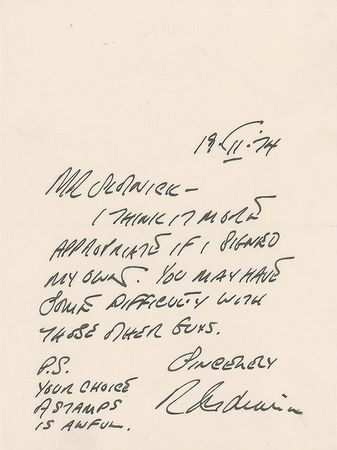 19·II·74
MR
I THINK IT MORE
APPROPRIATE IF I SIGNED
MY OWN. YOU MAY HAVE
SOME DIFFICULTY WITH
THOSE OTHER GUYS.
SINCERELY
P.S.
YOUR CHOICE
A STAMPS
IS AWFUL.